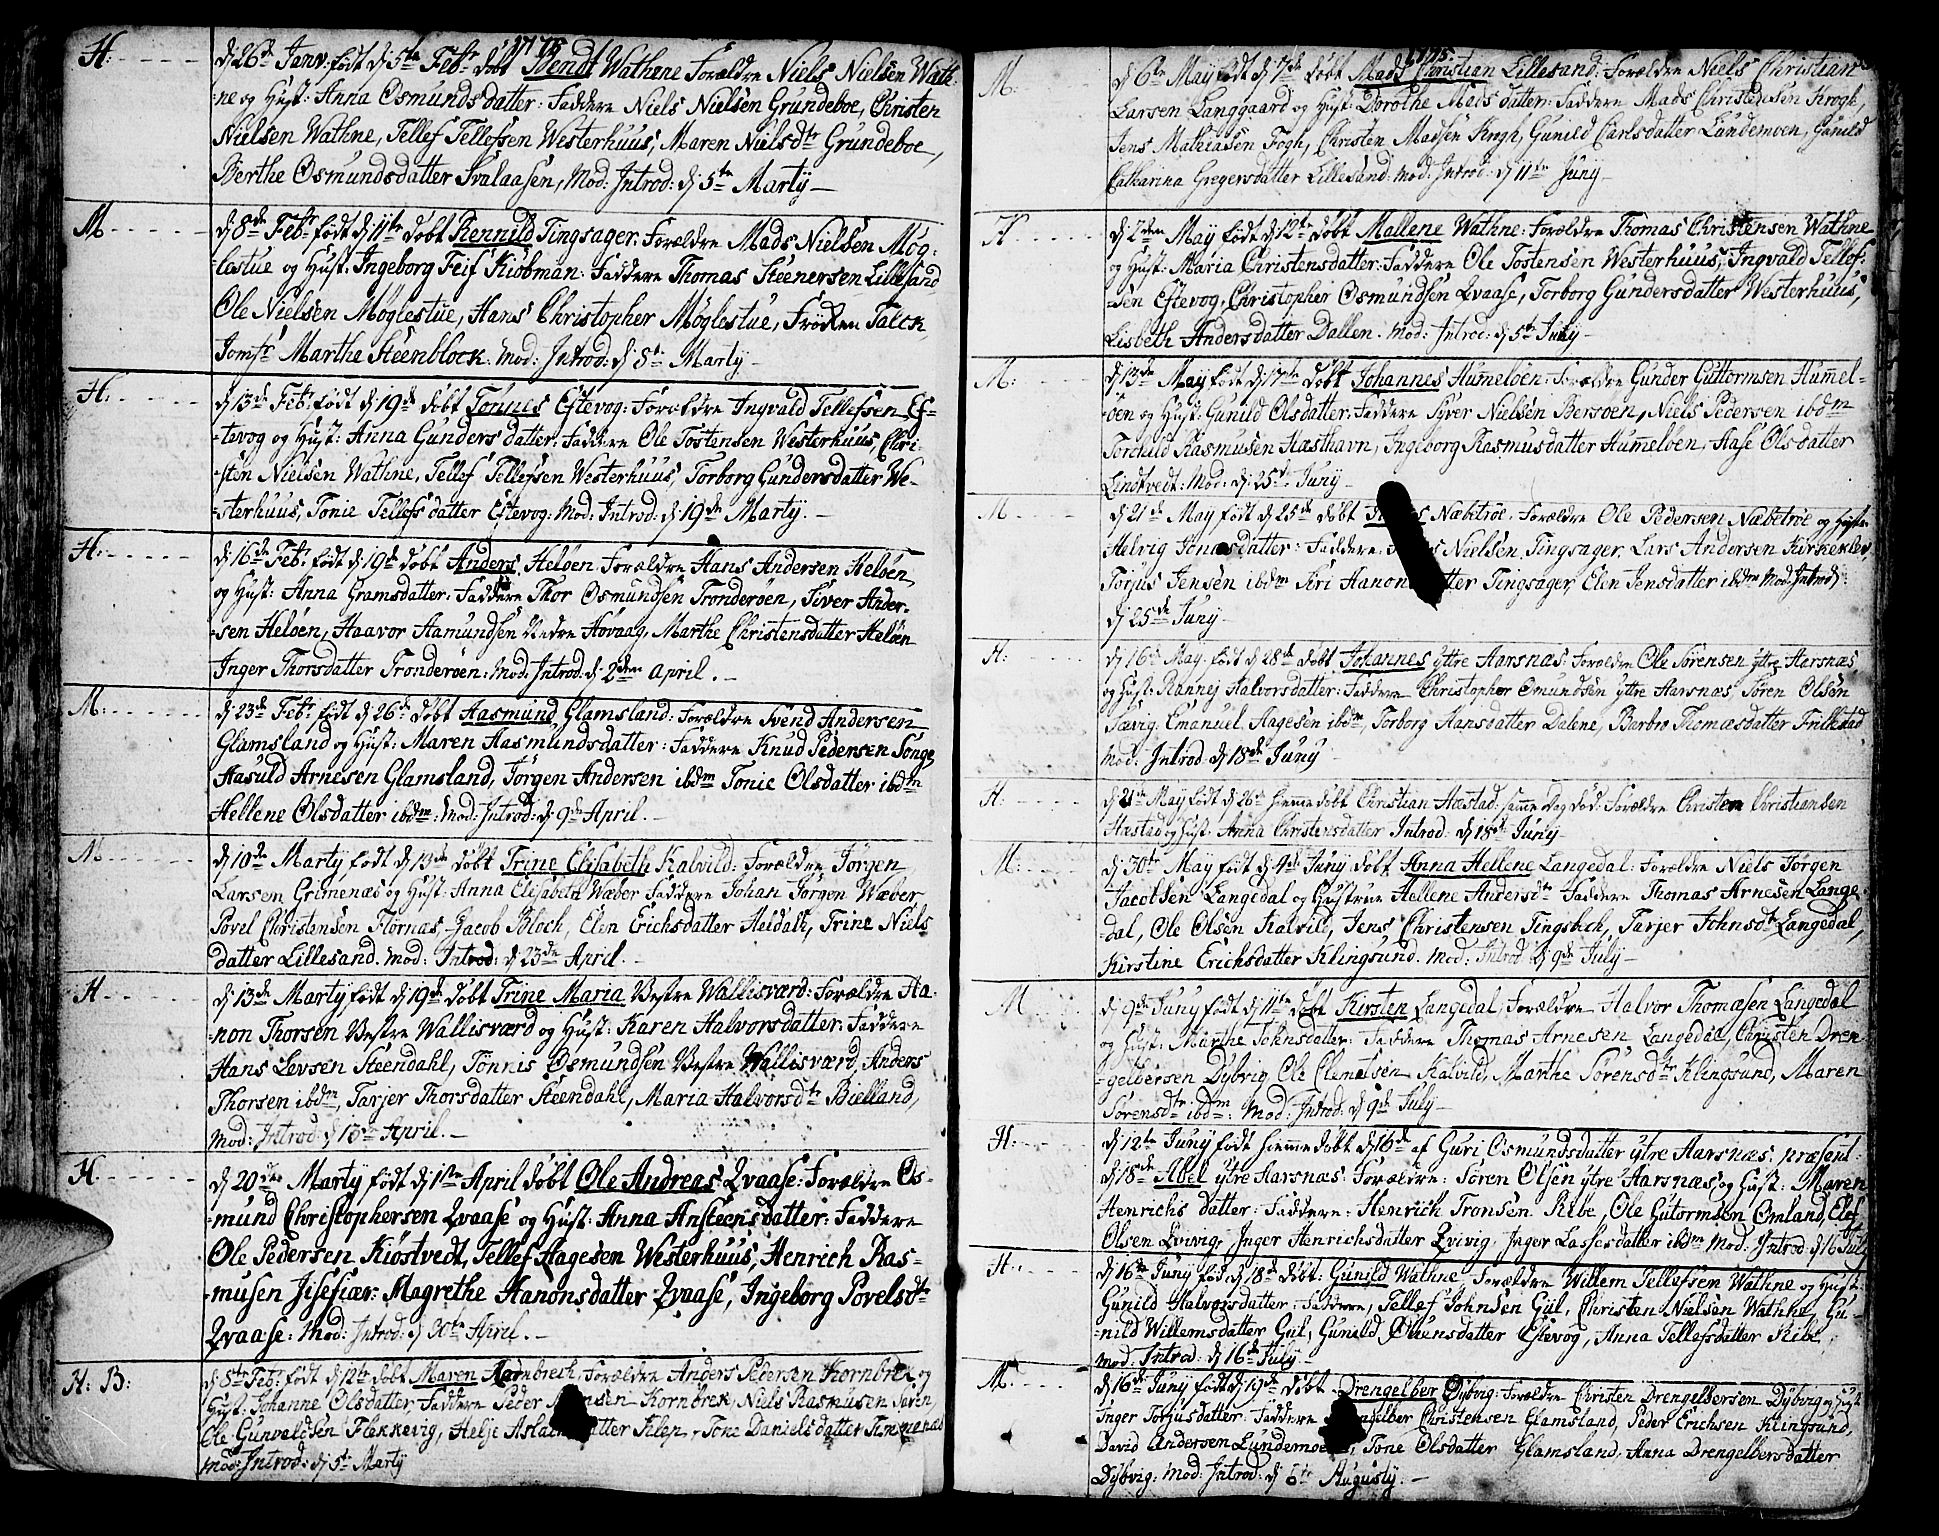 1775
H.
d: 26de Janv: født d: 5te Febr døbt Bendt Wathne Forældre Niels Nielsen Wath-
-ne og Hust: Anna Osmunds datter: Faddere Niels Nielsen Grundeboe, Christen
Nielsen Wathne, Tellef Tellefsen Westerhuus, Maren Nielsdtr Grundeboe,
Berthe Osmundsdatter Svalaasen, Mod: Introd: d: 5te Martij
M
d: 8de Febr født d: 11te døbt Rennild Tingsager: Forældre Mads Nielsen Møg-
lestue og Hust: Ingeborg Feif Kiøbman: Faddere Thomas Steenersen Lillesand
Ole Nielsen Møglestue, Hans Christopher Møglestue, Frøken Falck,
Jomfr Marthe Steenblock. Mod: Introd: d: 5te Marty
H.
d: 13de Febr: født d: 19de døbt Tønnes Estevog: Forældre Ingvald Tellefsen Es-
-tevog og Hust: Anna Gunders datter: Faddere Ole Tostensen Westerhuus, Chri-
-sten Nielsen Wathne, Tellef Tellefsen Westerhuus, Torborg Gundersdatter We-
-sterhuus, Tonie Tellefsdatter Estevog: Mod: Introd: d: 19de Marty.
H:
d: 16de Febr: født d: 19de døbt Anders Heløen Forældre Hans Andersen Heløen,
og Hust: Anna Gramsdatter: Faddere Thor Osmundsen Trønderøen, Siver Ander-
-sen Heløen, Haavor Aamundsen Nedre Hovaag, Marthe Christensdatter Heløen
Inger Thorsdatter Trønderøen: Mod: Introd: d: 2den April.
M:
d: 23de Febr født d: 26de døbt Aasmund Glamsland: Forældre Svend Andersen
Glamsland og Hust: Maren Aasmundsdatter: Faddere Knud Pedersen Songe,
Aasuld Arnesen Glamsland, Jørgen Andersen ibdm Tonie Olsdatter ibdm
Hellene Olsdatter ibdm: Mod: Introd: d: 9de April.
M
d: 10de Marty født d: 13de døbt Trine Elisabeth Kalvild: Forældre Jørgen
Larsen Grimenæs og Hust: Anna Elisabeth Wæber Faddere Johan Jørgen Wæber
Povel Christensen Flørnas, Jacob Bloch, Elen Ericksdatter Heidahl, Trine Niels
datter Lillesand. Mod: Introd: d: 23de April.
H
d: 13de Marty født d: 19de døbt Trine Maria Vestre Wallisværd: Forældre Ha-
-non Thorsen Vestre Wallisværd og Hust: Karen Halvorsdatter: Faddere
Hans Levsen Steendahl, Tønnis Osmundsen Vestre Wallisværd, Anders
Thorsen ibdm, Tarjer Thorsdatter Steendahl, Maria Halvorsdtr Bielland,
Mod: Introd: d: 13de April.
H.
d: 20de Marty født d: 1ste April døbt Ole Andreas Qvaase: Forældre Os-
-mund Christophersen Qvaase og Hust: Anna Ansteensdatter: Faddere
Ole Pedersen Kiøstvedt, Tellef Aagesen Westerhuus, Henrich Ras-
-musen Jisefiær: Magrethe Hanonsdatter Qvaase, Ingeborg Povelsdtr
Qvaase: Mod: Introd: d: 30te April.
H: B:
d: 5te Febr: født d: 12te døbt Maren Kornbrech, Forældre Anders Pedersen Kornbrek og
Hust: Johanne Olsdatter Faddere Peder Kornbrek, Niels Rasmusen
Ole Gunvaldsen Flekkevig, Helje Klep, Tone Danielsdatter
Mod: Introd: d: 5te Marty
1775.
M:
d: 6te May født d: 7de døbt Mads Christian Lillesand: Forældre Niels Christian
Larsen Langgaard og Hust: Dorothe Mads datter: Faddere Mads Christensen Krogh,
Jens Mathiasen Fogh, Christen Madsen Krogh, Gunild Carlsdatter Lundemoen, Gunild
Catharina Gregersdatter Lillesand. Mod: Introd: d: 11te Juny
H
d: 2den May født d: 12te døbt Mallene Wathne: Forældre Thomas Christensen Wathne
og Hust: Maria Christensdatter: Faddere Ole Tostensen Westerhuus, Ingvald Tellef-
-sen Estevog, Christopher Osmundsen Qvaase, Torborg Gundersdatter Westerhuus,
Lisbeth Andersdatter Dallen. Mod: Introd: d: 5te Juny
M:
d: 13de May født d: 17de døbt Johannes Humeløen: Forældre Gunder Guttormsen Humel-
-øen og Hust: Gunild Olsdatter: Faddere Syver Nielsen Bersøen, Niels Pedersen ibdm
Torchild Rasmusen Hæsthavn, Ingeborg Rasmusdatter Humeløen, Aase Olsdatter
Lindtvedt: Mod: d: 25de Juny
M
d: 21de May født d: 25de døbt Næbetrøe. Forældre Ole Pedersen Næbetrøe og Hust:
Helvig Jonasdatter: Faddere: Nielsen Tingsager, Lars Andersen Kirkekler,
Torjus Jensen ibdm Siri Tingsager, Elen Jensdatter ibdm Mod: Introd:
d: 25de Juny
H:
d: 16de May født d: 28de døbt Johannes yttre Aarsnæs: Forældre Ole Sørensen yttre Aarsnæs
og Hust: Rannej Halvorsdatter: Faddere Christopher Omundsen yttre Aarsnæs, Søren Olsen
Tævig, Emanuel Aagesen ibdm, Torborg Hansdatter Dalene, Barbro Thomasdatter Frillestad
Mod: Introd: d: 18de Juny
H:
d: 21de May født d: 26de hiemmedøbt Christian Hæstad, samme Dag død: Forældre Christen Christiansen
Hæstad og Hust: Anna Christensdatter Introd: d: 18de Juny
M:
d: 30te May født d: 4de Juny døbt Anna Hellene Langedal: Forældre Niels Jørgen
Jacobsen Langedal og Hustrue Hellene Andersdtr Faddere Thomas Arnesen Lange-
-dal, Ole Olsen Kalvild, Jens Christensen Tingstich, Tarjer Johnsdtr Langedal,
Kirstine Erichsdatter Klingsund. Mod: Introd: d: 9de July
M
d: 9de Juny født d: 11te døbt Kirsten Langedal, Forældre Halvor Thomasen Langedal
og Hust: Marthe Johnsdatter: Faddere Thomas Arnesen Langedal, Christen Dren-
-gelbersen Dybvig Ole Clemetsen Kalvild, Marthe Sørensdtr Klingsund, Maren
Sørensdtr ibdm: Mod: Introd: d: 9de July
H:
d: 12te Juny født hiemmedøbt d: 16de af Guri Osmundsdatter ytre Aarsnæs, præsent:
d: 18de Abel ytre Aarsnæs: Forældre: Søren Olsen ytre Aarsnæs og Hust: Maren
Henrichs datter: Faddere: Henrich Tronsen Ribe, Ole Gutormsen Omland, Elef
Olsen Qvivig, Inger Henrichsdatter Qvivig, Inger Lassesdatter ibdm Mod: Introd: d: 16 July
H:
d: 16de Juny født d: 18de døbt: Gunild Wathne, Forældre Willem Tellefsen Wathne og Hust:
Gunild Halvorsdatter: Faddere, Tellef Johnsen Giil, Christen Nielsen Wathne, Gu-
-nild Willemsdatter Giil, Gunild Omunsdatter Estevog, Anna Tellefsdatter Ribe,
Mod: Introd: d: 16de July
M:
d: 16de Juny født d: 19de døbt Drengelber Dybvig: Forældre Christen Drengelbersen Dybvig og Hust
Inger Torjusdatter: Faddere Christensen Glamsland, Peder Erichsen Klingsund,
David Andersen Lundemoen, Tone Olsdatter Glamsland, Anna Drengelbersdatter
Dybvig: Mod: Introd: d: 6te Augusty.